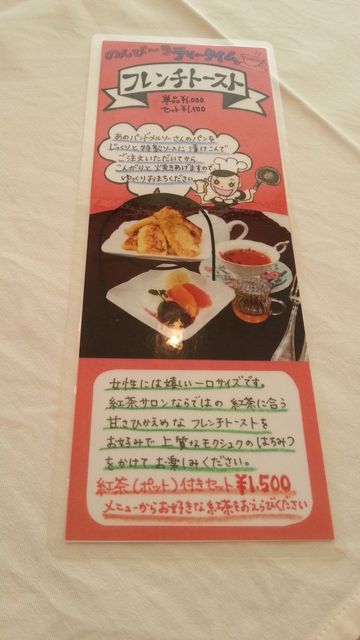 のんび〜りティータイム
フレンチトースト
単品¥1,000
セット¥1,500
あのパンドメルソーさんのパンを
じっくりと特製ソースに漬けこんで
ご注文いただいてから
こんがりと火尭きあげますので
ゆっくりおまちください
女性には嬉しい一口サイズです。
紅茶サロンならではの紅茶に合う
甘さひかえめなフレンチトーストを
お好みで上質なモクシュクのはちみつ
をかけてお楽しみください。
紅茶(ポット)付きセット¥1,500
メニューからお好きな紅茶をおえらびください